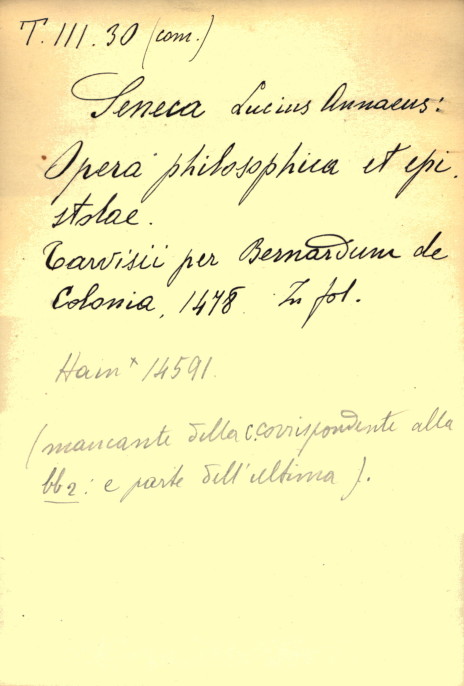 T. III. 30 (com.)
Seneca Lucius Annaeus:
Opera philosophica et epi.
stolae.
Tarvisii per Bernardum de
Colonia, 1478 In fol.
Hain* 14591.
(mancante della c. corrispondente alla
bb2: e parte dell'ultima).